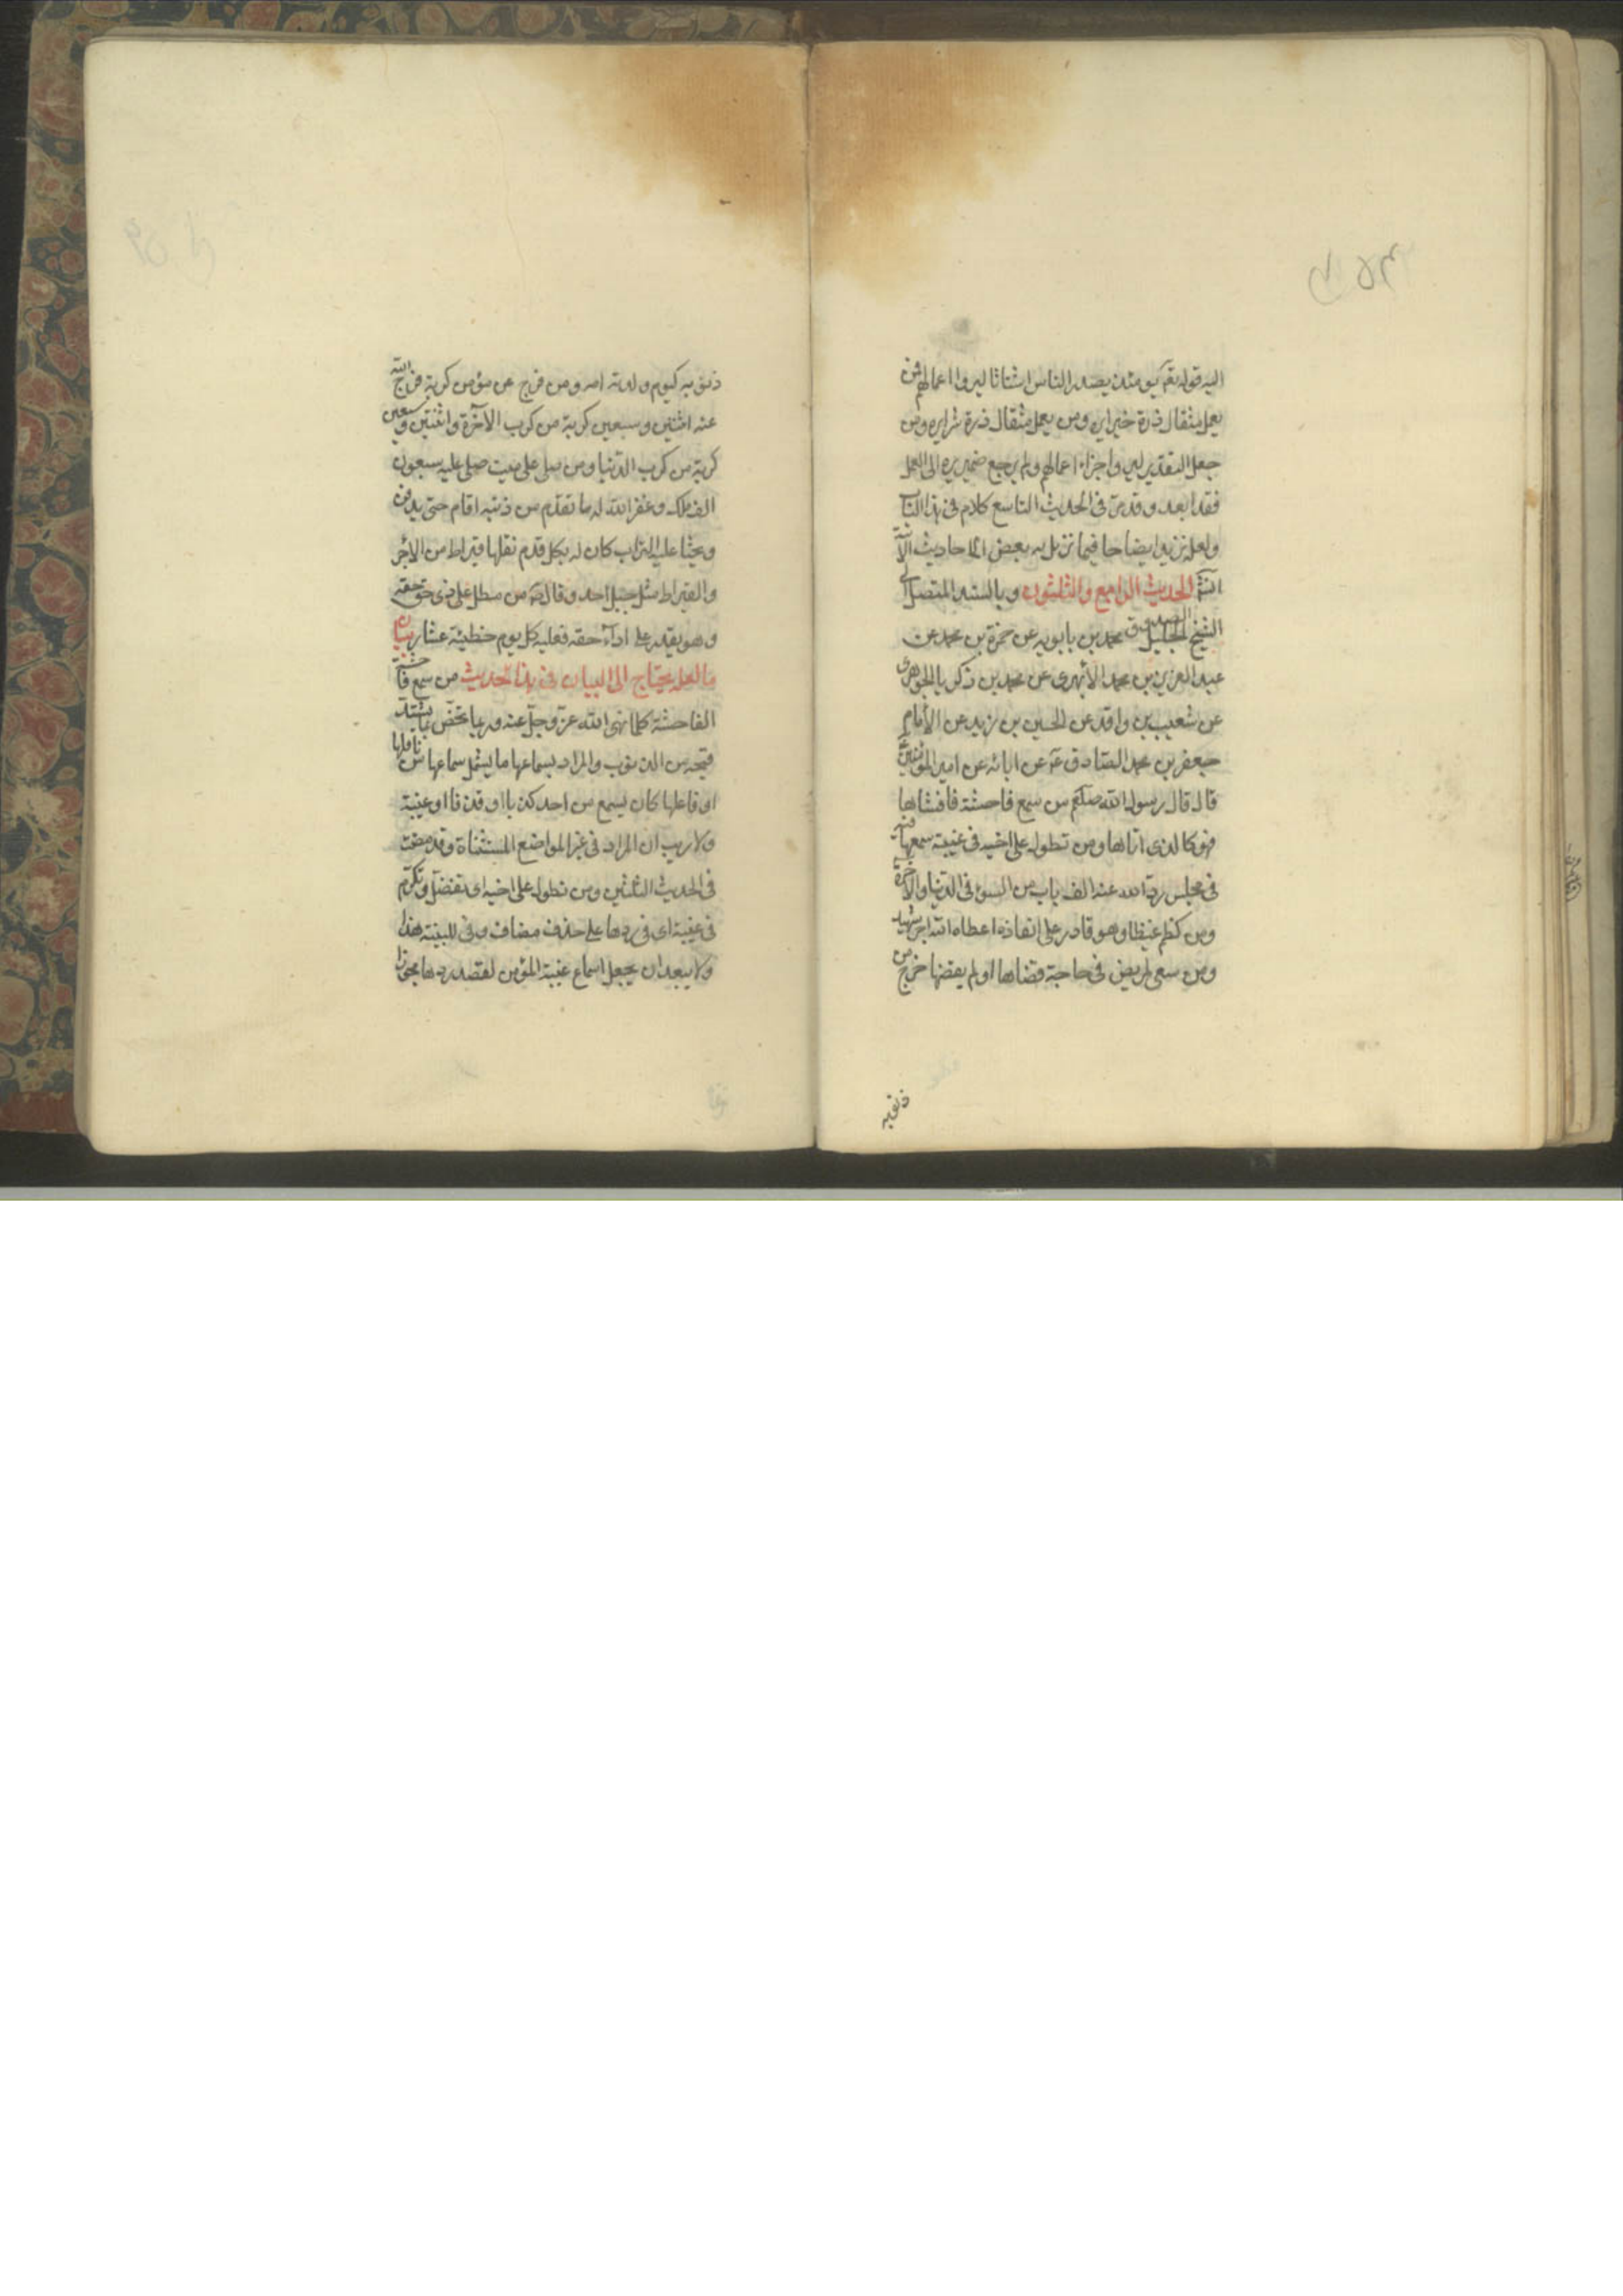 اليه قوله تعالى يومئذ يصدر الناس اشتاتا ليروا اعمالهم فمن
يعمل مثقال ذرة خيرا يره ومن يعمل مثقال ذرة شرا يره ومن
جعل التقدير ليروا جزاء اعمالهم ولم يرجع ضمير يره الى العمل
فقد ابعد وقد مر فى الحديث التاسع كلام فى هذا الباب
ولعلنا نزيده ايضاحا فيما نذيل به بعض الاحاديث الآتية
انشـ الحديث الرابع والثلثون وبالسند المتصل الى
الشيخ الجليل الصدوق محمد بن بابويه عن حمزة بن محمد عن
عبد العزيز بن محمد الأبهرى عن محمد بن زكريا الجوهرى
عن شعيب بن واقد عن الحسين بن زيد عن الأمام
جعفر بن محمد الصادق عن ابائه عن امير المؤمنين
قال قال رسول الله صلعم من سمع فاحشة فافشاها
فهو كالذى اتاها ومن تطول على اخيه فى غيبة سمعها فيه
فى مجلس رد الله عنه الف باب من السوء فى الدنيا والآخرة
ومن كظم غيظا وهو قادر على انفاذه اعطاه الله اجر شهيد
ومن سعى لمريض فى حاجة قضاها او لم يقضها خرج من
ذنوبه
ذنوبه كيوم ولدته امه ومن فرج عن مؤمن كربة فرج الله
عنه اثنتين وسبعين كربة من كرب الآخرة واثنتين وسبعين
كربة من كرب الدنيا ومن صلى على ميت صلى عليه سبعون
الف ملك وغفر الله له ما تقدم من ذنبه اقام حتى يدفن
ويحثا عليه التراب كان له بكل قدم نقلها قيراط من الاجر
والقيراط مثل جبل احد وقال من مطل على ذى حق حقه
وهو يقدر على اداء حقه فعليه كل يوم خطيئة عشار بيان
ما لعله يحتاج الى البيان فى هذا الحديث من سمع فاحشة
الفاحشة كلما نهى الله عز وجل عنه وربما يخص بما يشتد
قبحه من الذنوب والمراد بسماعها ما يشمل سماعها من ناقلها
او فاعلها كان يسمع من احد كذبا او قذفا او غيبة
ولا ريب ان المراد فى غير المواضع المستثناة وقد مضت
فى الحديث الثلثين ومن تطول على اخيه اى تفضل وتكرم
فى غيبة اى فى ردها على حذف مضاف وفى للبينة هذا
ولا يبعد ان يجعل اسماع غيبة المؤمن لقصد ردها مجوزا